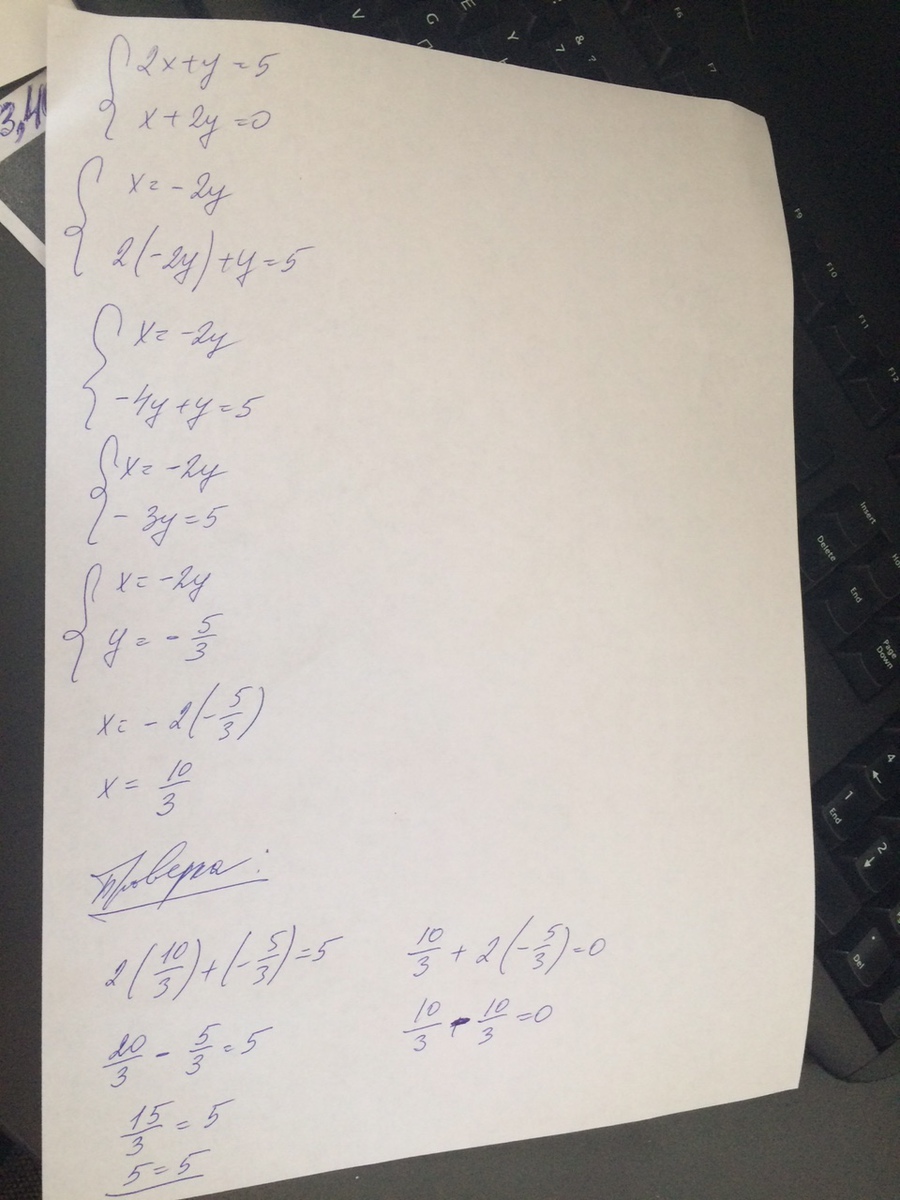 2x+y=5
x+2y=0
x=-2y
2(-2y)+y=5
x=-2y
-4y+y=5
x=-2y
-3y=5
x=-2y
y=-5/3
x=-2(-5/3)
x=10/3
Проверка:
2(10/3)+(-5/3)=5
20/3-5/3=5
15/3=5
5=5
10/3+2(-5/3)=0
10/3-10/3=0
3,4
V
G
E
Y
&
7
?
F6
F7
F9
F10
F11
F12
Insert
Delete
End
Page Down
4
1
End
2
.
Del